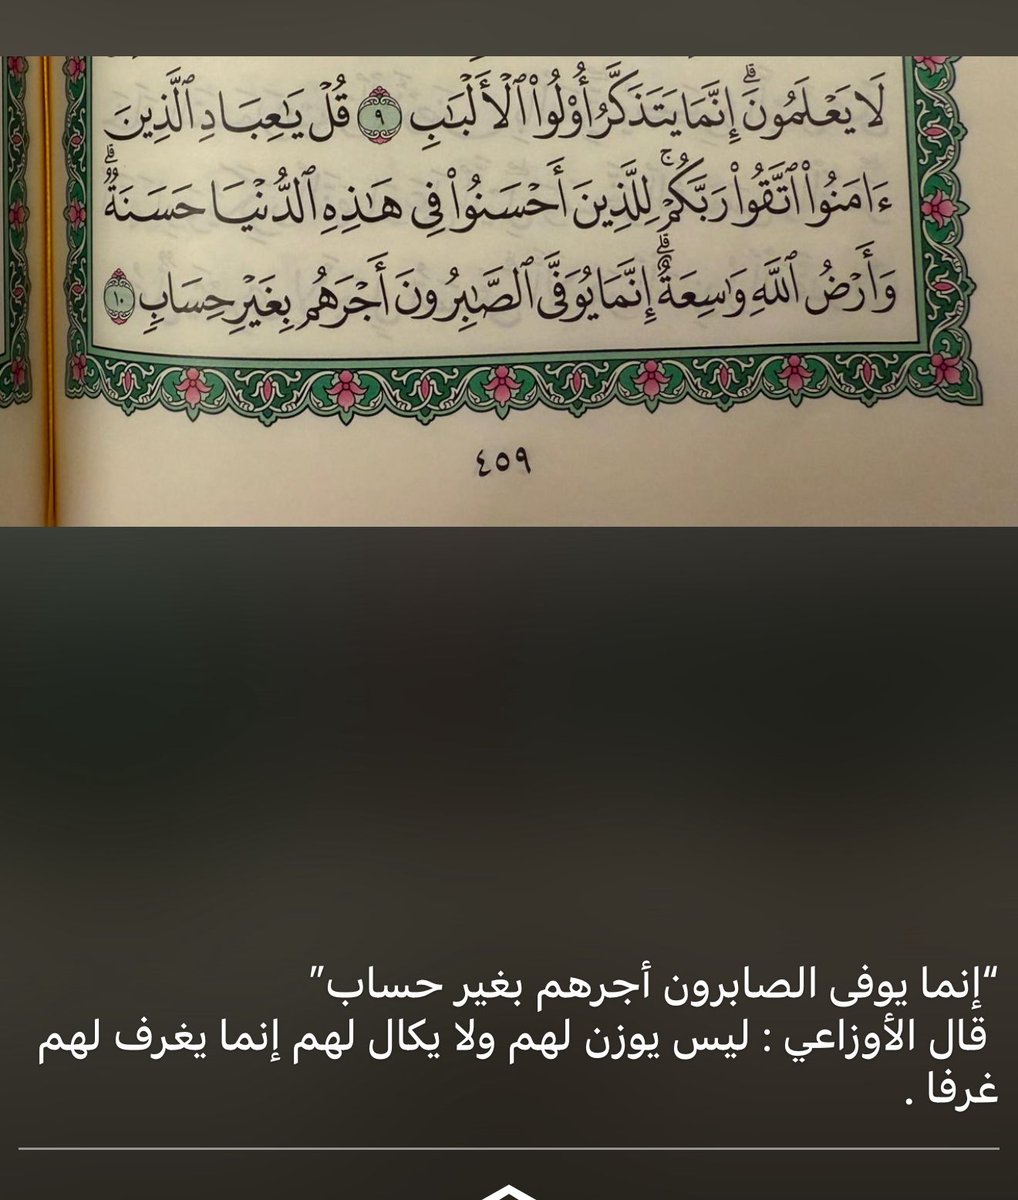 لَا يَعْلَمُونَ ۗ إِنَّمَا يَتَذَكَّرُ أُو۟لُوا۟ ٱلْأَلْبَٰبِ ٩ قُلْ يَٰعِبَادِ ٱلَّذِينَ
ءَامَنُوا۟ ٱتَّقُوا۟ رَبَّكُمْ ۚ لِلَّذِينَ أَحْسَنُوا۟ فِى هَٰذِهِ ٱلدُّنْيَا حَسَنَةٌ ۗ
وَأَرْضُ ٱللَّهِ وَٰسِعَةٌ ۗ إِنَّمَا يُوَفَّى ٱلصَّٰبِرُونَ أَجْرَهُم بِغَيْرِ حِسَابٍ ١٠
٤٥٩
“إنما يوفى الصابرون أجرهم بغير حساب”
قال الأوزاعي : ليس يوزن لهم ولا يكال لهم إنما يغرف لهم
غرفا .